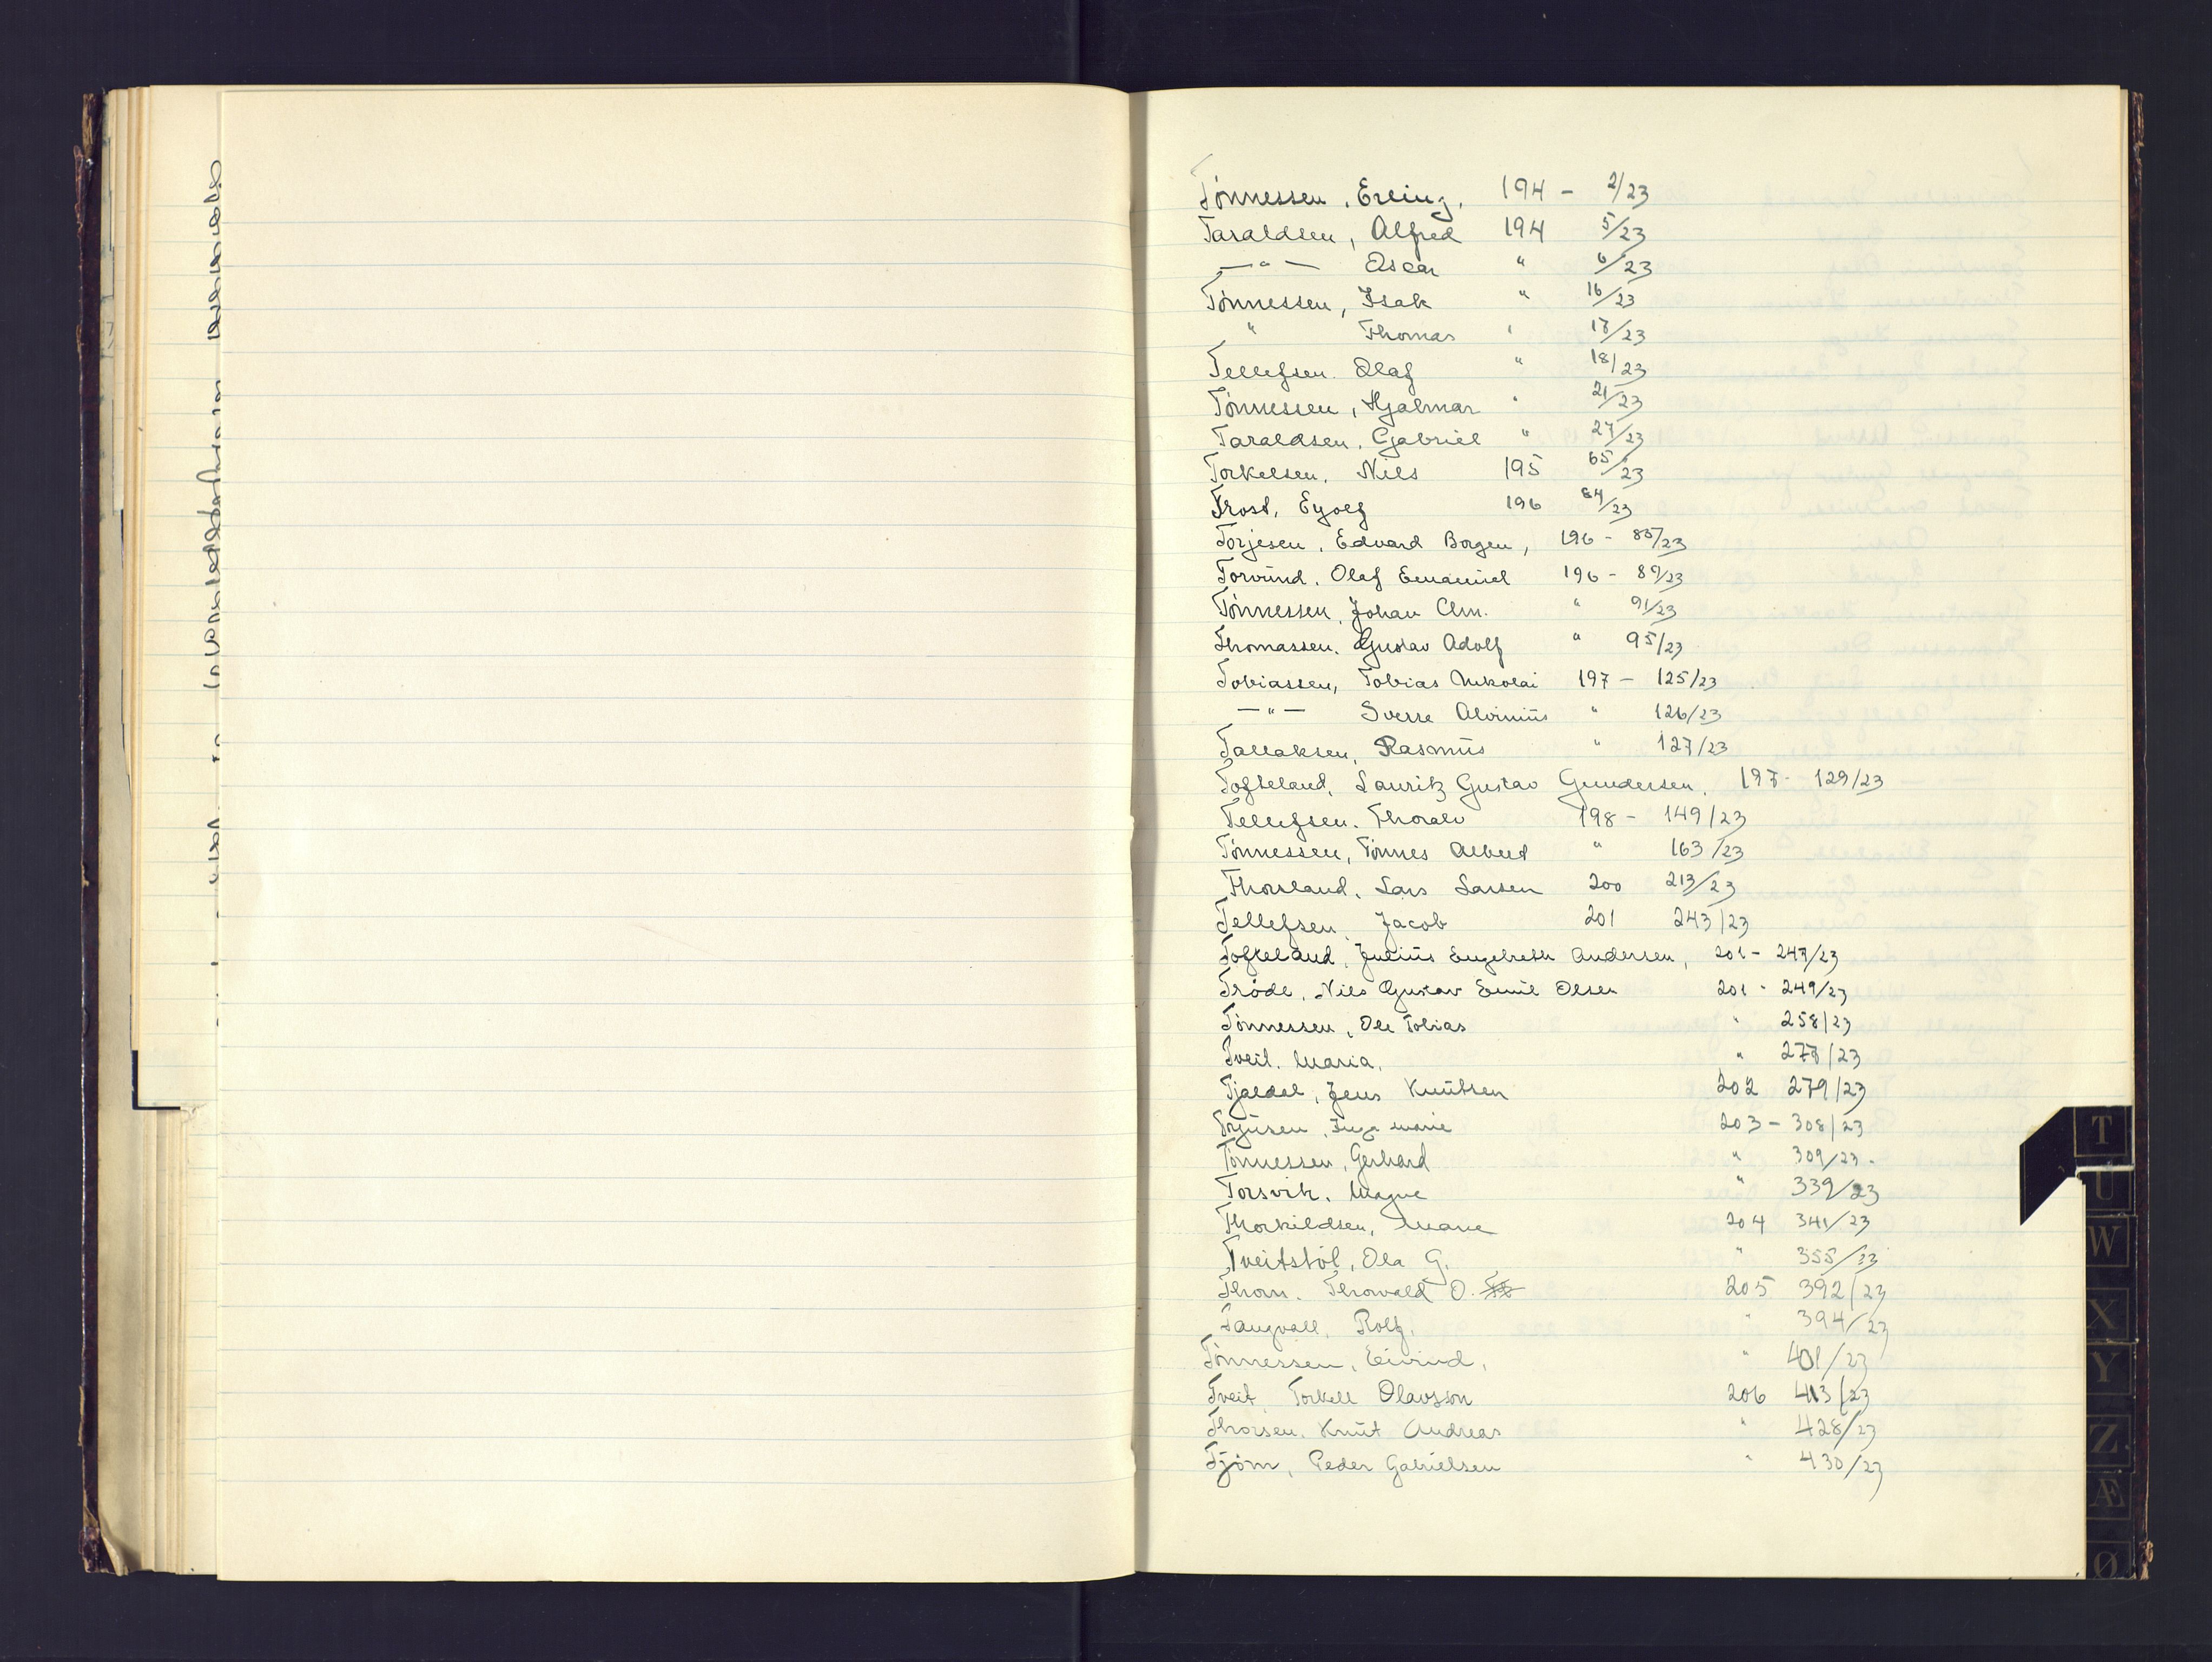 Tönnessen, Erling, 194 - 2/23
Taraldsen, Alfred 194 5/23
— " — Oscar " 6/23
Tönnessen, Isak " 16/23
" Thomas " 17/23
Tellefsen. Olaf " 18/23
Tönnessen, Hjalmar " 21/23
Taraldsen. Gabriel " 27/23
Torkelsen. Nils 195 65/23
Trost, Eyolf 196 84/23
Torjesen, Edvard Borgen, 196 - 85/23
Torvund. Olaf Emanuel 196 - 89/23
Tönnessen, Johan Chr. " 91/23
Thomassen. Gustav Adolf " 95/23
Tobiassen, Tobias Nikolai 197 - 125/23
— " — Sverre Alvinius " 126/23
Tallaksen, Rasmus " 127/23
Tofteland, Lauritz Gustav Gundersen. 197 - 129/23
Tellefsen. Thoralv 198 - 149/23
Tönnessen, Tönnes Albert " 163/23
Thorsland, Lars Larsen 200 213/23
Tellefsen, Jacob 201 243/23
Tofteland, Julius Engebreth Andersen, 201 - 247/23
Tröde, Nils Gustav Emil Olsen 201 - 249/23
Tönnessen, Ole Tobias " 258/23
Tveit. Maria. " 277/23
Tjaldal, Jens Knutsen 202 279/23
Inga Marie 203 - 308/23
Tönnessen, Gerhard " 309/23.
Torsvik. Magne " 339/23
Thorkildsen, Marie 204 341/23
Tveitstöl, Ola G. " 355/23
Thom. Thorvald O. 205 392/23
Tangvall, Rolf. " 394/23
Tönnessen, Eivind, " 401/23
Tveit, Torkell Olavsson 206 413/23
Thorsen. Knut Andreas " 428/23
Tjöm, Peder Gabrielsen " 430/23
T
U
W
X
Y
Z
Æ
Ø